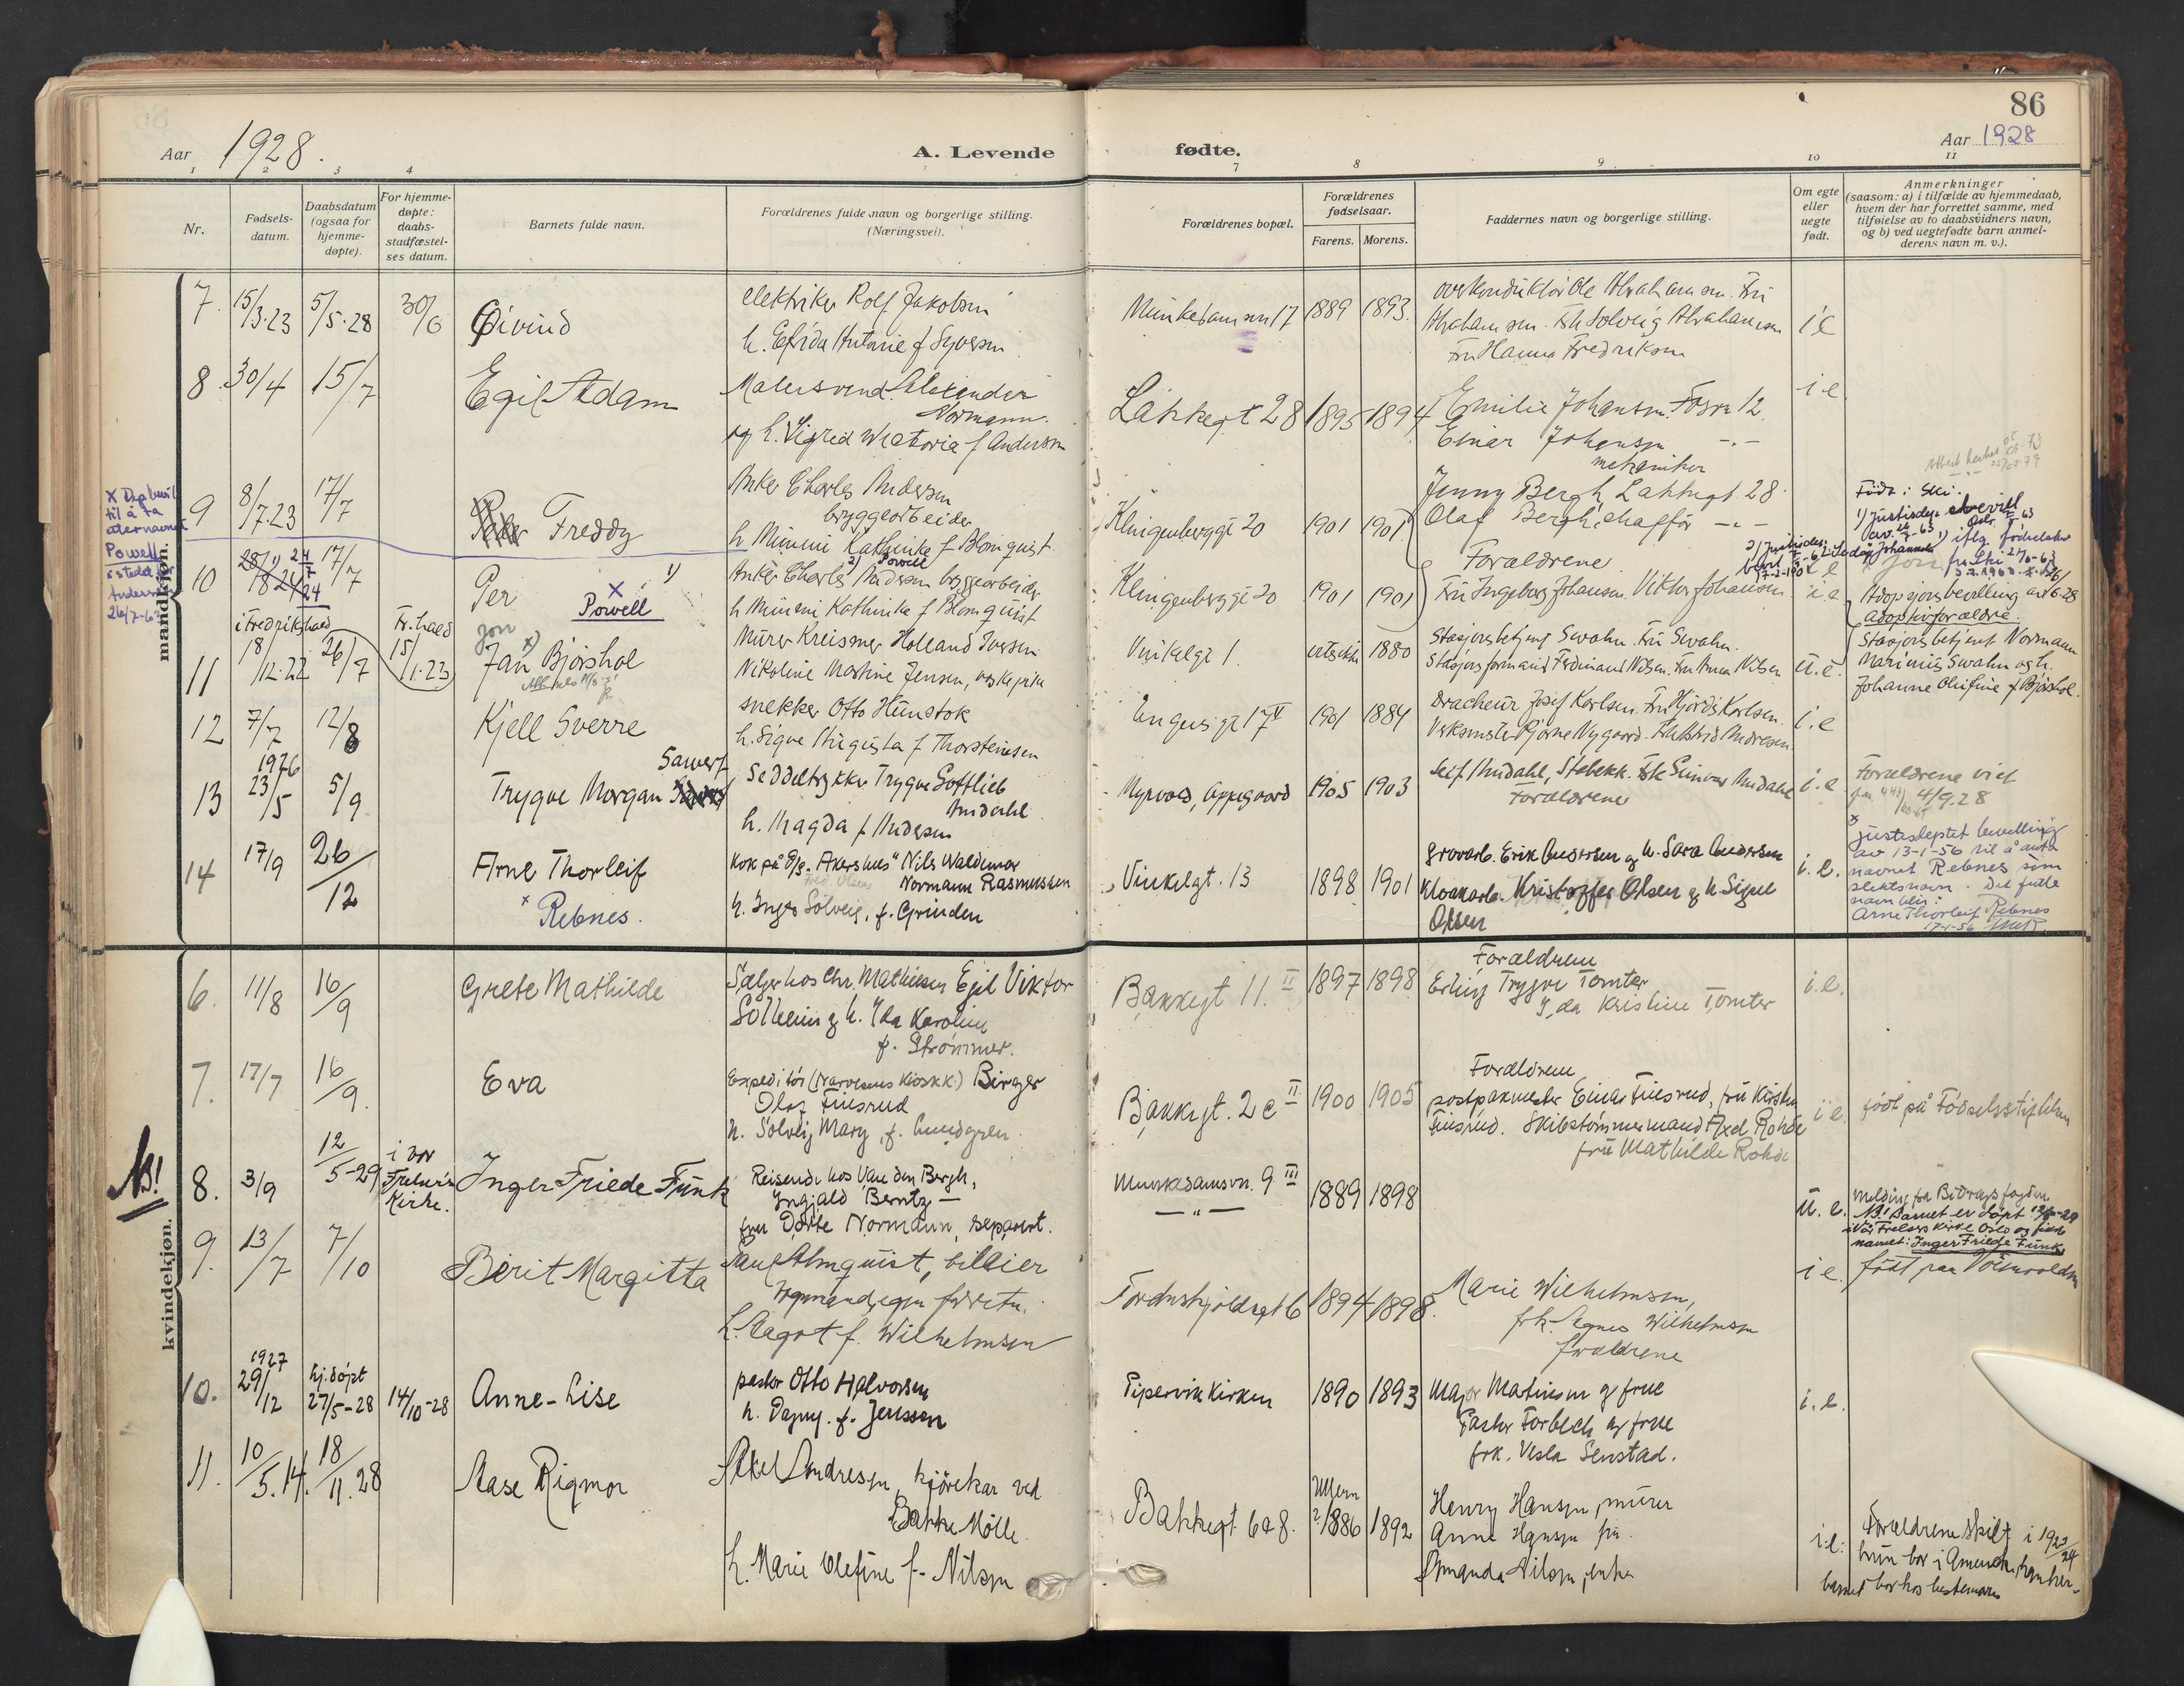 86
Aar 1928.
A. Levende
fødte.
Aar 1928
1 2 3 4 7 8 9 10 11
Nr.
Fødsels-
datum.
Daabsdatum
(ogsaa for
hjemme-
døpte).
For hjemme-
døpte:
daabs-
stadfæstel-
ses datum.
Barnets fulde navn.
Forældrenes fulde navn og borgerlige stilling.
(Næringsvei).
Forældrenes bopæl.
Forældrenes
fødselsaar.
Farens. Morens.
Faddernes navn og borgerlige stilling.
Om egte
eller
uegte
født.
Anmerkninger
(saasom: a) i tilfælde av hjemmedaab,
hvem der har forrettet samme, med
tilføielse av to daabsvidners navn,
og b) ved uegtefødte barn anmel-
derens navn m. v.).
mandkjøn.
7. 15/3.23 5/5.28 30/6 Øivind
elektriker Rolf Jakobsen
h. Efrida Antonie f Syversen
17 1889 1893.
overkonduktør Ole Abrahamsen. Fru
Abrahamsen. Frk Solveig Abrahamsen
Fru Hanna Fredriksen
i e
8 30/4 15/7 Egil Adam
Malersvend Alexander
Normann.
og h. Sigrid Wictoria f Anderson
Lakkegt 28 1895 1894
Emilie Johansen. Fosvn 12.
Einar Johansen -.-
mekaniker
i e
9 8/7.23 17/7 Freddy
Anker Charles Andersen
bryggearbeider
h Mimmi Kathinka f Blomquist
Klingenberggt 20 1901 1901
Jenny Bergh Lakkegt. 28
Olaf Bergh, chaffør -.-
Forældrene
Født i Ski.
10 28/8 24 24/7 24 17/7 Per
x Powell
1)
2) Powell
Anker Charles Andersen bryggearbeider
h Mimmi Kathinka f Blomquist
Klingenberggt 20 1901 1901
Fru Ingeborg Johansen. Viktor Johansen
i e
x
til å ta
Powell
istedetfor
Andersen
26/7-6
11 i Fredrikshald
18/12.22 26/7
Fr.hald
15/1.23
Jon
Jan Bjørshol
Murer Kreismer Holland Iversen
Nikoline Martine Jensen,
1. 1880
Stasjonsbetjent Swahn. Fru Swahn.
Stasjonsformand Ferdinand Nilsen. Fru Anna Nilsen
u.e.
Adopsjonsbevilling av 26/6-28
Adoptivforældre.
Stasjonsbetjent Normann
Marinius Swahn og h.
Johanne Olufine f Bjørshol.
12 7/7 12/8 Kjell Sverre
snekker Otto Hunstok
h. Signe Augusta f Thorsteinsen
1901 1884
Josef Karlsen. Fru Hjørdis Karlsen.
Verksmester Bjarne Nygaard. Frk Astrid Andresen.
i. e
13 1926
23/5 5/9 Trygve Morgan
Sawert
Seddeltrykker Trygve Gottlieb
Amdahl
h. Magda f Andersen
Myrvold, Oppegaard 1905 1903
Leif Amdahl, Stabekk. Frk Gunvor Amdahl
Forældrene
i. e
Forældrene viet
4/9.28
14 17/9 26/12 Arne Thorleif
x Rebnes.
Kok på D/S. "Akershus" Nils Waldemar
Fred. Olsens Normann Rasmussen
h. Inga Solveig, f. Grinden
Vinkelgt. 13 1898 1901
Grovarb. Erik Andersen og h. Sara Andersen
Kloakarb. Kristoffer Olsen og h. Signe
Olsen
i. e.
x
Justisdeptet bevilling
av 13-1-56 til å anta
navnet Rebnes som
slektsnavn. Det fulle
navn blir:
Arne Thorleif Rebnes
17-1-56
kvindekjøn.
6. 11/8 16/9 Grete Mathilde
Sælger hos Chr. Mathiesen Egil Viktor
Solheim og h. Ida Karoline
f. Strømmer.
Bakkegt 11. II 1897 1898
Forældrene
Erling Trygve Tomter
Ida Kristine Tomter
i. e.
7. 17/7 16/9. Eva
Expeditør (Narvesens Kioskk.) Birger
Olaf Fuisrud
h. Solveig Mary, f. Lundgren
Bakkegt. 2 c II 1900 1905
Forældrene
postpakmester Einar Fuisrud, fru Kirsten
Fuisrud. Skibstømmermand Axel Rohde
fru Mathilde Rohde
i e.
født på Fødselsstiftelsen
NB!
8. 3/9 12/5-29
i Vor
Frelsers
Kirke.
Inger Friede Funk
Reisende hos Van den Bergh,
Ingjald Berntz —
fru Dorte Normann, separert.
Munkedamsvn. 9 III
— " —
1889 1898
u. e.
Melding fra Bidragsfogden
NB! Barnet er døpt 12/5-29
i Vår Frelsers Kirke Oslo og fikk
navnet: Inger Friede Funk
9. 13/7 7/10 Berit Margitta
Paul Almquist, bileier
h. Aagot f. Wilhelmsen
Tordenskjoldsgt 6 1894 1898.
Marie Wilhelmsen,
frk. Agnes Wilhelmsen
forældrene
i e.
10. 1927
29/12
hj.døpt
27/5-28 14/10-28 Anne-Lise
pastor Otto Halvorsen
h. Dagny. f. Jenssen
Pipervik kirken 1890 1893
Major Mathiesen og frue
Pastor Forbech og frue
frk. Vesla Senstad.
i. e.
11. 10/5.14. 18/11.28 Aase Rigmor
Axel Andresen, kjørekar ved
Bakke Mølle.
h. Marie Olefine f. Nilsen
Bakkegt. 6 a 8.
Ullern
? 1886 1892
Henry Hansen, murer
Anna Hansen fru.
Amanda Nilsen, enke
i. e.
Forældrene skilt i 1923/24
hun bor i Amerika, han her
barnet bor hos bestemoren